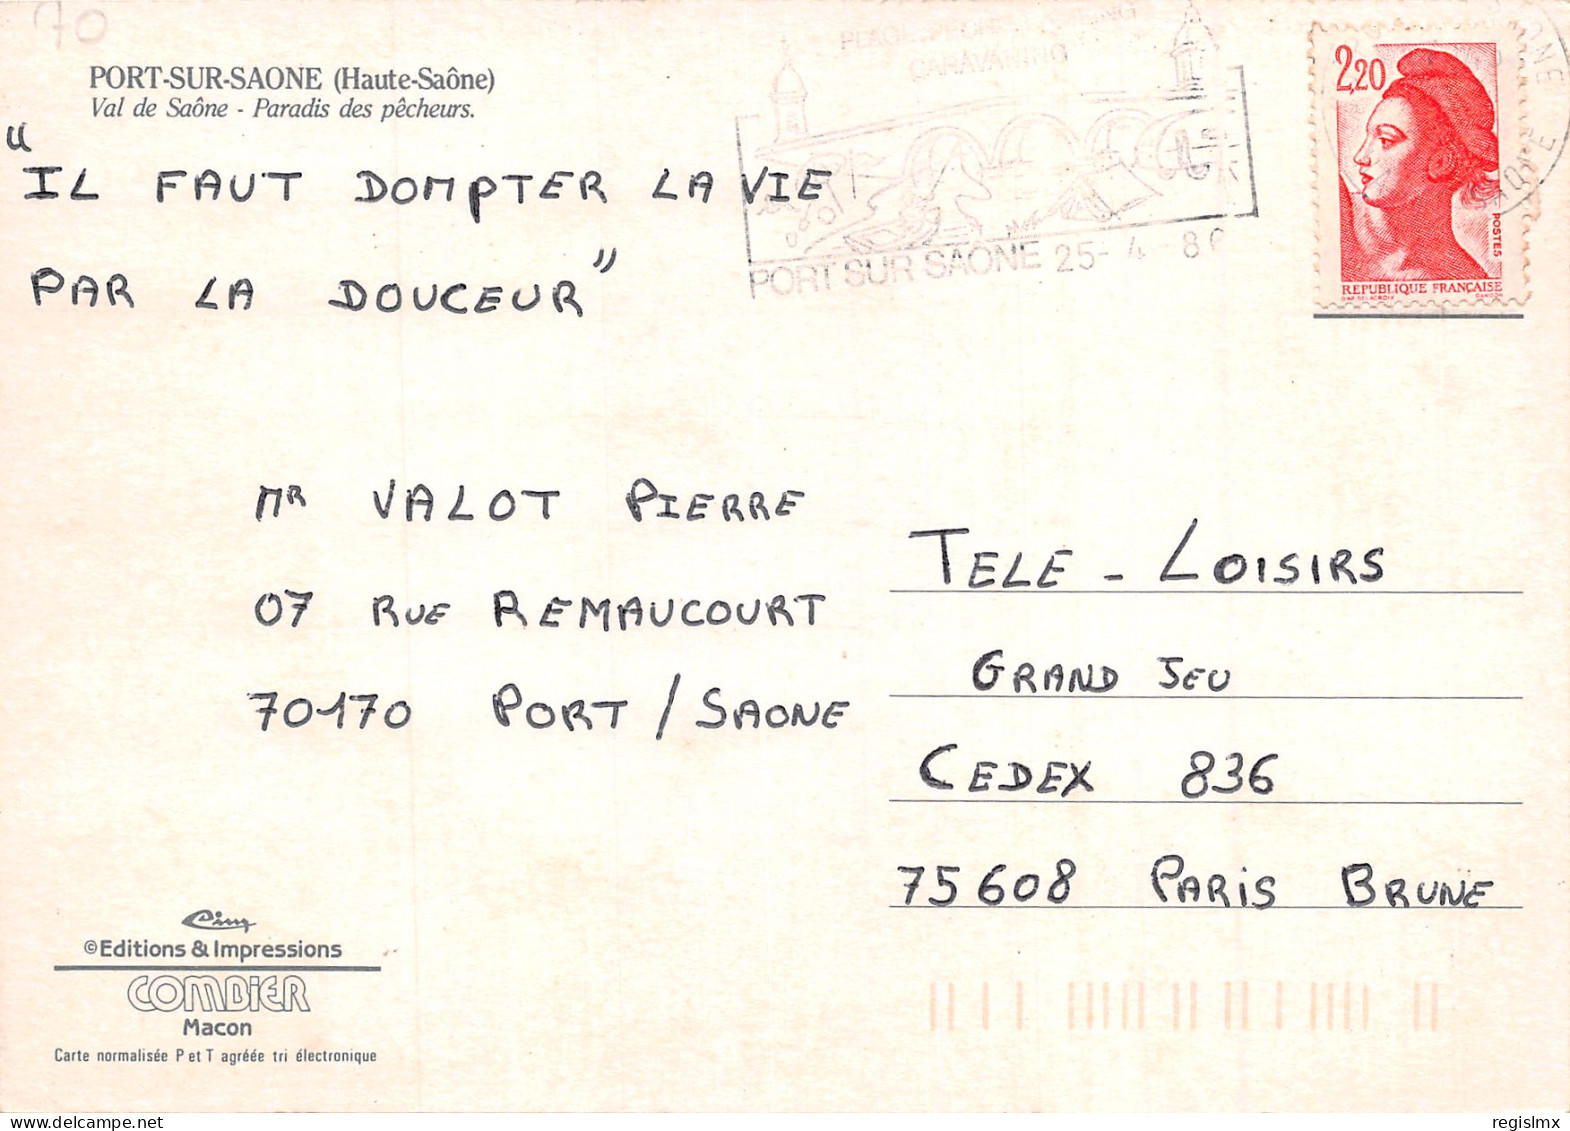 70
PORT-SUR-SAONE (Haute-Saône)
Val de Saône - Paradis des pêcheurs.
"IL FAUT DOMPTER LA VIE
PAR LA DOUCEUR"
CARAVANING
PORT SUR SAONE 25-4
2,20
POSTES
REPUBLIQUE FRANÇAISE
MR VALOT PIERRE
07 RUE REMAUCOURT
70170 PORT / SAONE
TELE - LOISIRS
GRAND JEU
CEDEX 836
75608 PARIS BRUNE
Cim
©Editions & Impressions
COMBIER
Macon
Carte normalisée P et T agréée tri électronique
regislmx